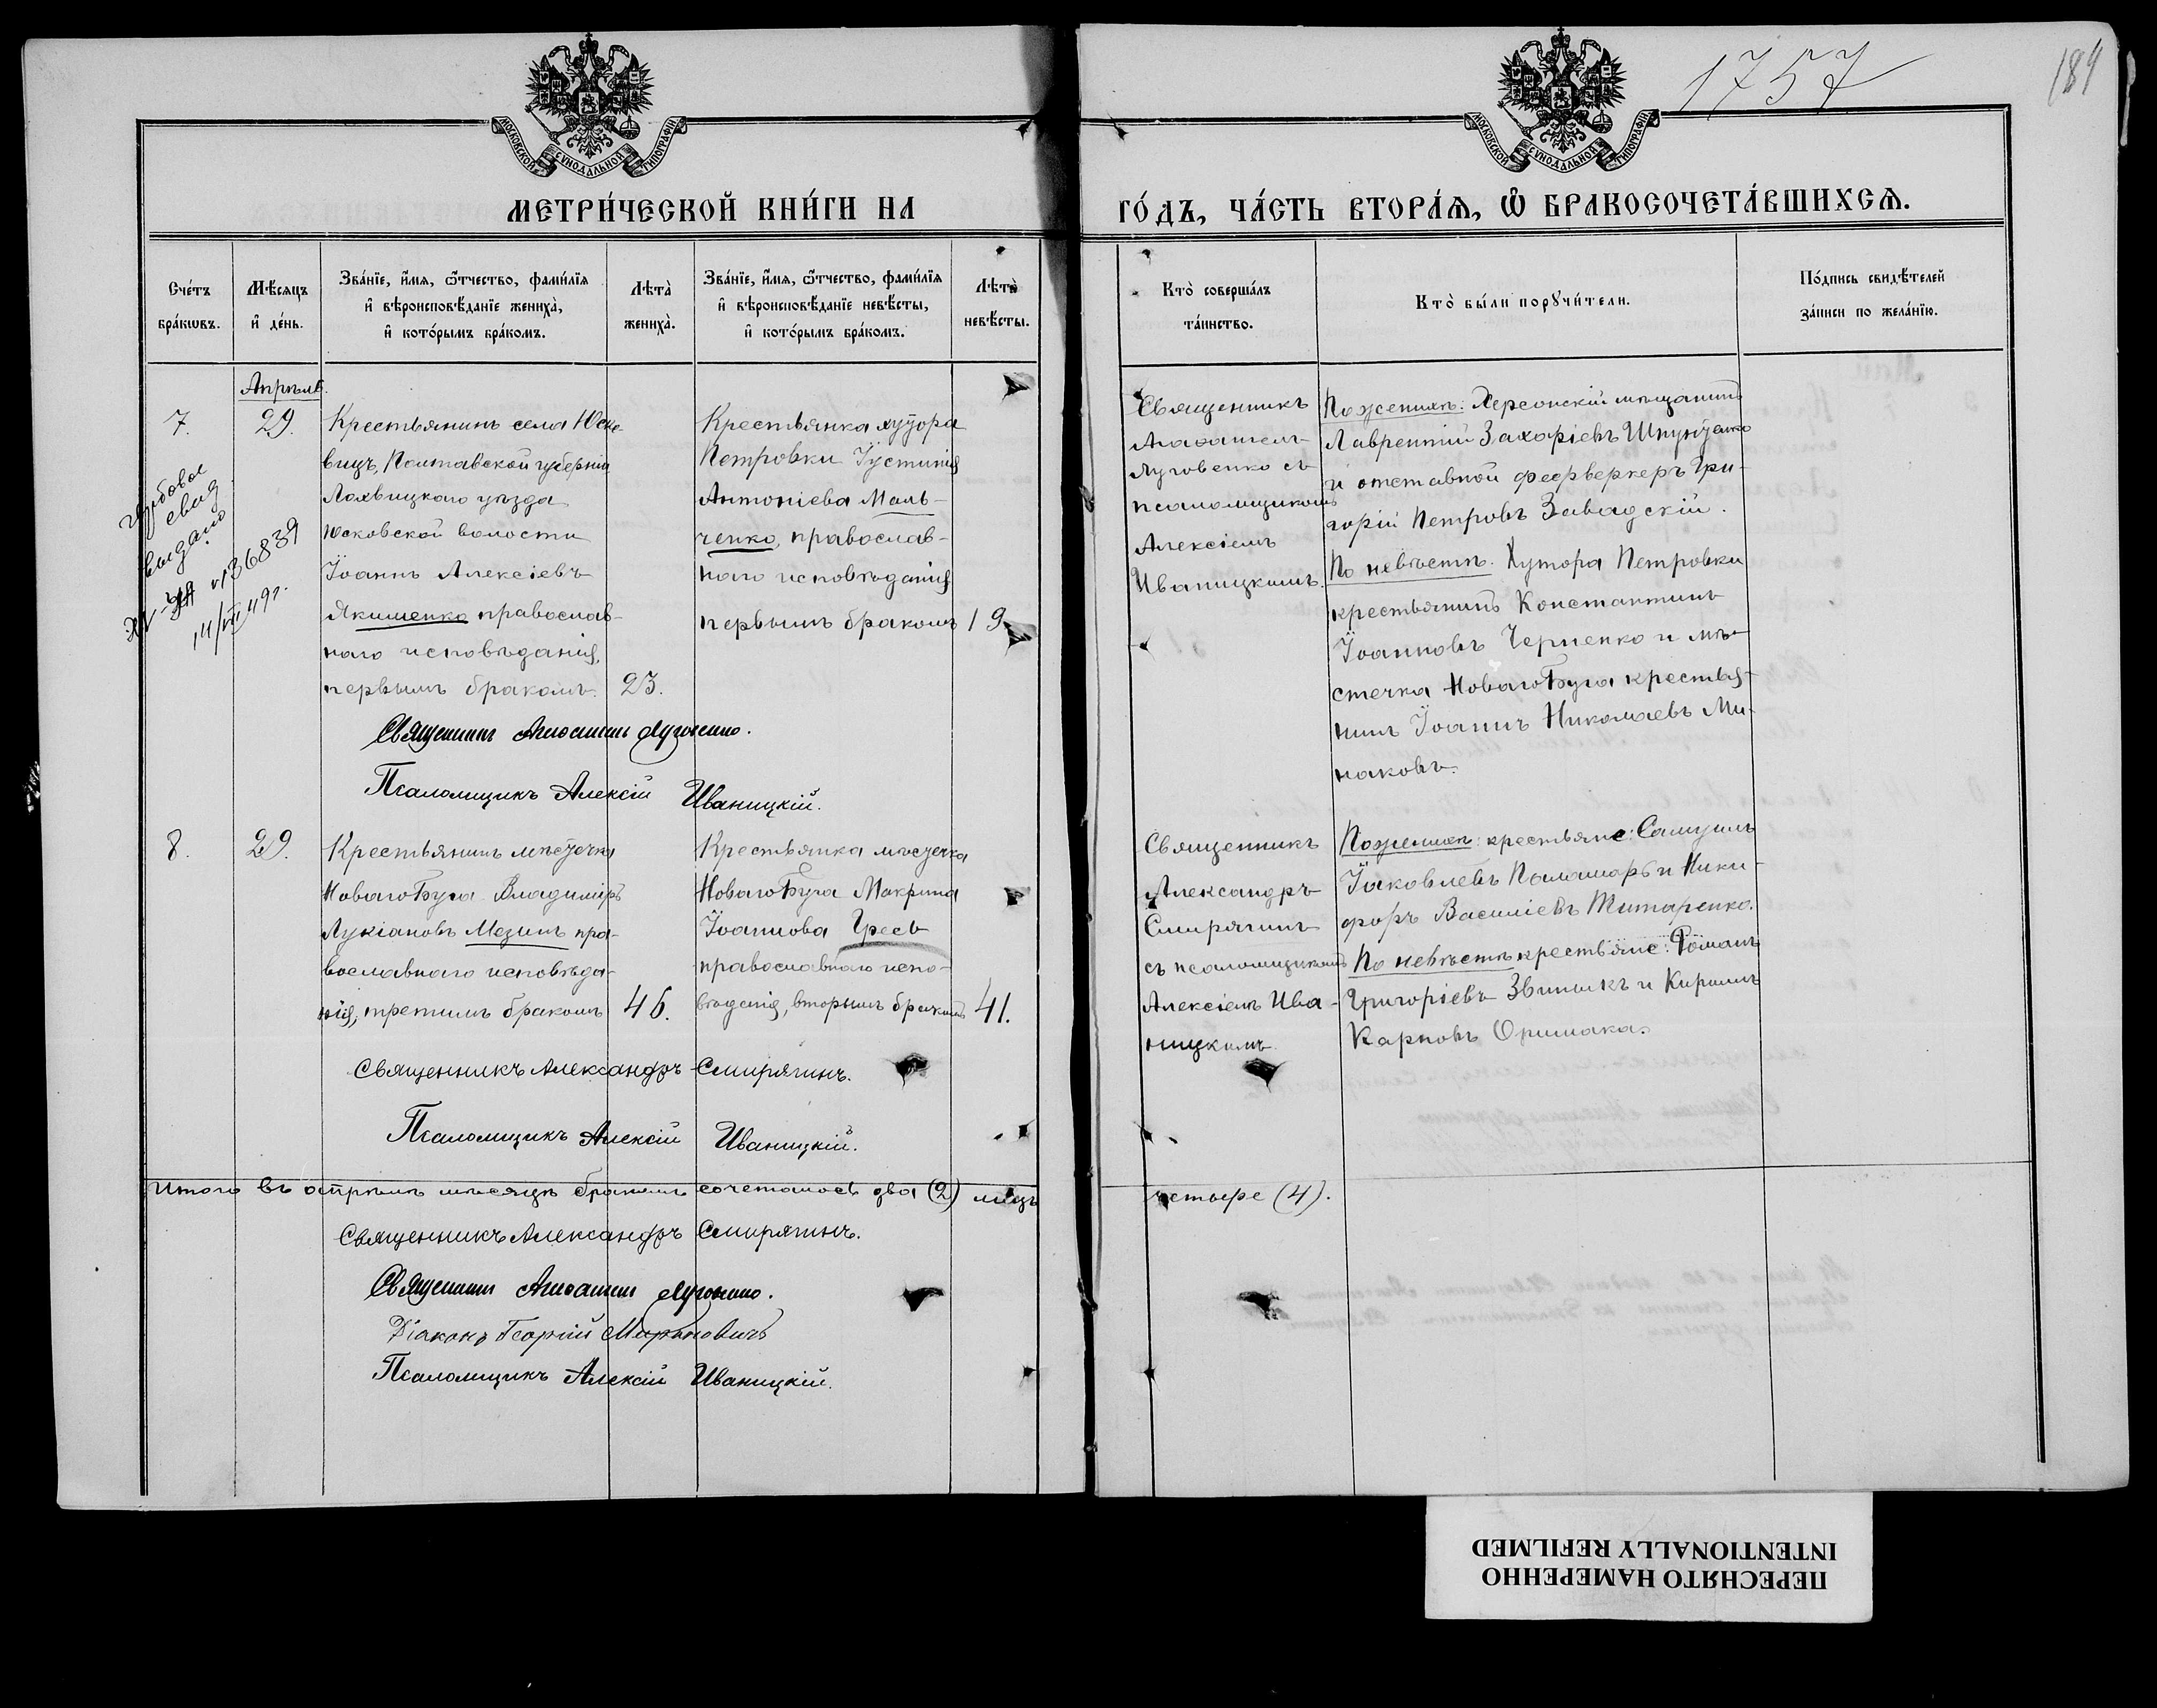 1757
184
МОСКОВСКОЙ СѴНОДАЛЬНОЙ ТИПОГРАФІИ
МОСКОВСКОЙ СѴНОДАЛЬНОЙ ТИПОГРАФІИ
МЕТРИ́ЧЕСКОЙ КНИ́ГИ НА
ГО́ДЪ, ЧА́СТЬ ВТОРА́Ѧ, Ѽ БРАКОСОЧЕТА́ВШИХСѦ.
Сче́тъ
бра́кѡвъ.
Мѣ́сяцъ
и҆ де́нь.
Зва́нїе, и҆́мя, ѻ҆́тчество, фами́лїя
и҆ вѣроисповѣ́данїе жениха̀,
и҆ кото́рымъ бра́комъ.
Лѣ́та̀
жениха̀.
Зва́нїе, и҆́мя, ѻ҆́тчество, фами́лїя
и҆ вѣроисповѣ́данїе невѣ́сты,
и҆ кото́рымъ бра́комъ.
Лѣ́та̀
невѣ́сты.
Кто̀ соверша́лъ
та́инство.
Кто̀ бы́ли порꙋчи́тели.
По́дпись свидѣ́телей
за́писи по жела́нїю.
Апрѣль.
7.
29.
Крестьянинъ села Юско
вицъ, Полтавской губерніи
Лохвицкаго уѣзда
Юсковской волости
Іоаннъ Алексіевъ
Якименко православ-
наго исповѣданія,
первымъ бракомъ.
23.
Крестьянка хутора
Петровки Іустинія
Антоніева Маль-
ченко, православ-
наго исповѣданія
первымъ бракомъ
19
свид
выдано
36839
14/VII 49г.
Священникъ
Луговенко съ
псаломщикомъ
Алексіемъ
Иваницкимъ.
По женихѣ: Херсонскій мѣщанинъ
Лаврентій Захаріевъ
и отставной феерверкеръ Гри-
горій Петровъ Завадскій.
По невѣстѣ. Хутора Петровки
крестьянинъ Константинъ
Іоанновъ Черненко и мѣ-
стечка Новаго Буга крестья-
нинъ Іоаннъ Николаевъ Ми-
наковъ.
Священникъ Луговенко.
Псаломщикъ Алексій Иваницкій.
8.
29.
Крестьянинъ мѣстечка
Новаго Буга Владиміръ
Лукіановъ Мезинъ пра-
вославнаго исповѣда-
нія, третимъ бракомъ
46.
Крестьянка мѣстечка
Новаго Буга Макрина
Іоаннова Гресь
православнаго испо-
вѣданія, вторымъ бракомъ
41.
Священникъ
Александръ
Смирягинъ
съ псаломщикомъ
Алексіемъ Ива-
ницкимъ
По женихѣ: крестьяне: Самуилъ
Іаковлевъ Паламарь и Ники-
форъ Василіевъ Титаренко.
По невѣстѣ крестьяне: Романъ
Григоріевъ и Кириллъ
Карповъ
Священникъ Александръ Смирягинъ.
Псаломщикъ Алексій Иваницкій.
Итого въ апрѣлѣ мѣсяцѣ бракомъ сочеталось два (2) лицъ
четыре (4).
Священникъ Александръ Смирягинъ.
Священникъ Луговенко.
Діаконъ Георгій Мартиновичъ
Псаломщикъ Алексій Иваницкій.
ПЕРЕСНЯТО НАМЕРЕННО
INTENTIONALLY REFILMED